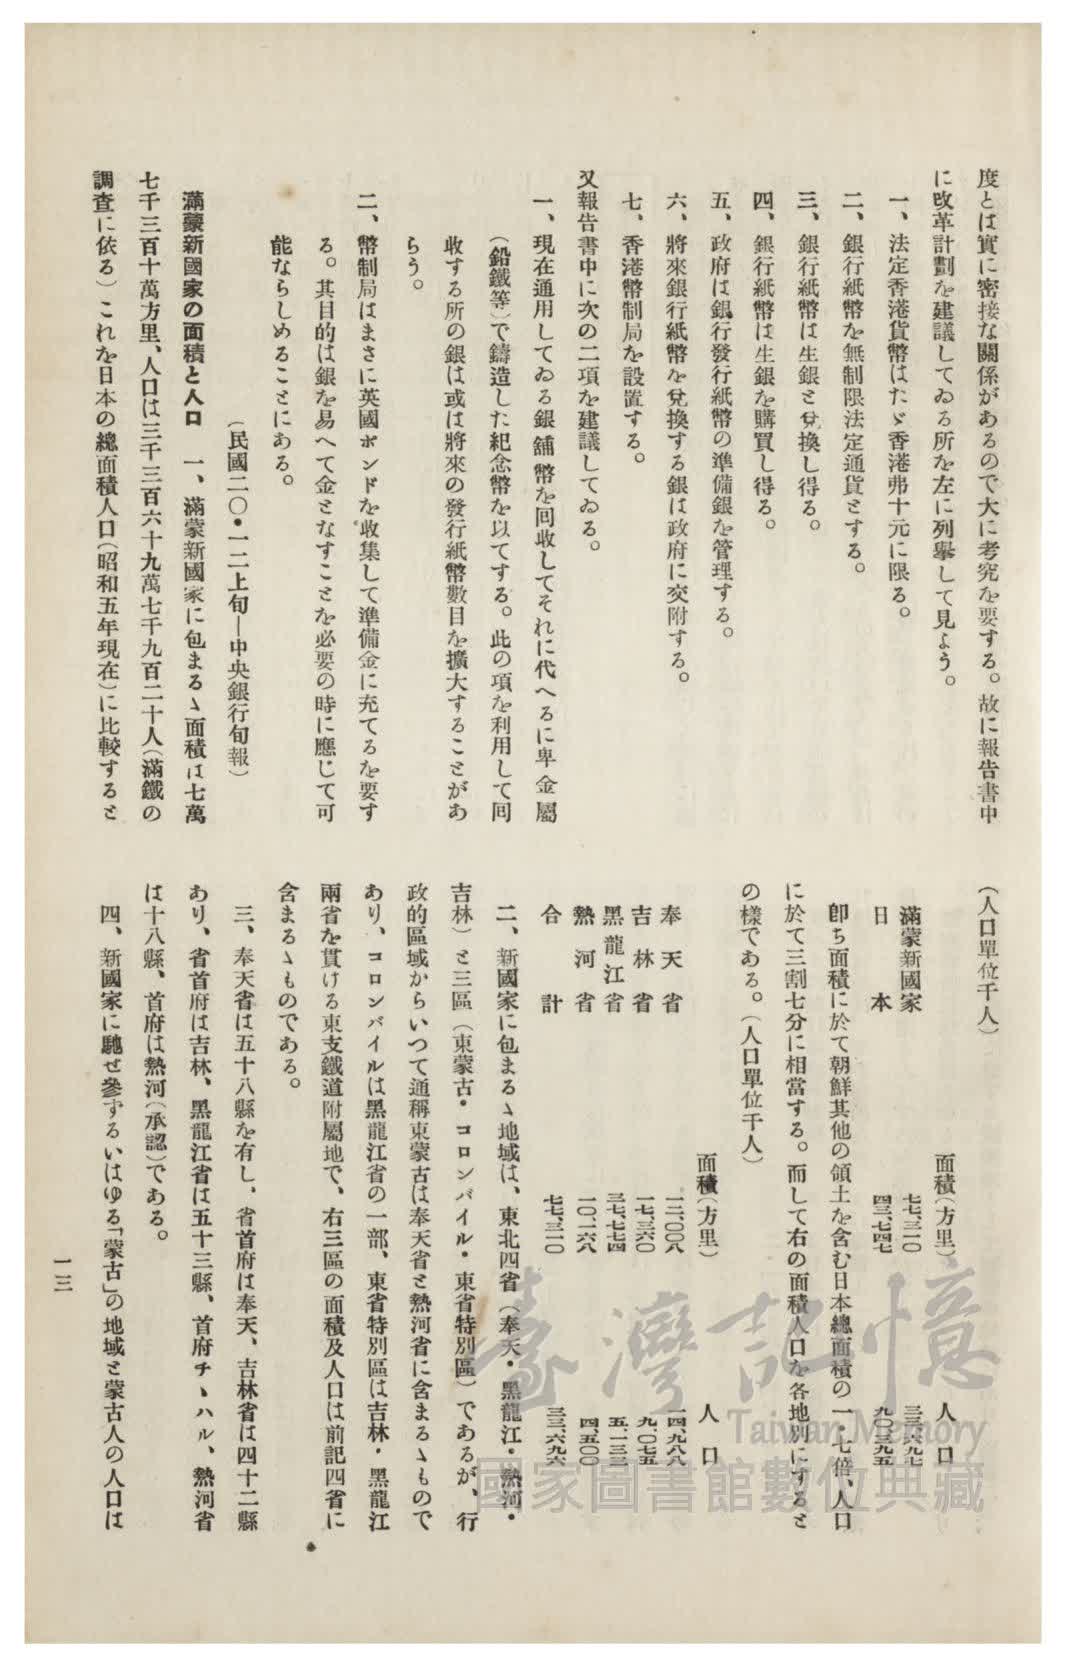 度とは實に密接な關係があるので大に考究を要する。故に報告書中
に改革計劃を建議してゐる所を左に列擧して見よう。
一、法定香港貨幣はたゞ香港弗十元に限る。
二、銀行紙幣を無制限法定通貨とする。
三、銀行紙幣は生銀と兌換し得る。
四、銀行紙幣は生銀を購買し得る。
五、政府は銀行發行紙幣の準備銀を管理する。
六、將來銀行紙幣を兌換する銀は政府に交附する。
七、香港幣制局を設置する。
又報告書中に次の二項を建議してゐる。
一、現在通用してゐる銀舖幣を囘收してそれに代へるに卑金屬
(鉛鐵等)で鑄造した紀念幣を以てする。此の項を利用して囘
收する所の銀は或は將來の發行紙幣數目を擴大することがあ
らう。
二、幣制局はまさに英國ポンドを收集して準備金に充てるを要す
る。其目的は銀を易へて金となすことを必要の時に應じて可
能ならしめることにある。
(民國二〇・一二上旬―中央銀行旬報)
滿蒙新國家の面積と人口 一、滿蒙新國家に包まるゝ面積は七萬
七千三百十萬方里、人口は三千三百六十九萬七千九百二十人(滿鐵の
調査に依る)これを日本の總面積人口(昭和五年現在)に比較すると
(人口單位千人)
面積(方里) 人口
滿蒙新國家 七七、三一〇 三三、六九七
日本 四三、七四七 九〇、三九五
卽ち面積に於て朝鮮其他の領土を含む日本總面積の一・七倍、人口
に於て三割七分に相當する。而して右の面積人口を各地別にすると
の樣である。(人口單位千人)
面積(方里) 人口
奉天省 一二、〇〇八 一四、九八八
吉林省 一七、三六〇 九、〇七五
黑龍江省 三七、七七四 五、一三三
熱河省 一〇、一六八 四、五〇〇
合計 七七、三一〇 三三、六九六
二、新國家に包まるゝ地域は、東北四省(奉天・黑龍江・熱河・
吉林)と三區(東蒙古・コロンバイル・東省特別區)であるが、行
政的區域からいつて通稱東蒙古は奉天省と熱河省に含まるゝもので
あり、コロンバイルは黑龍江省の一部、東省特別區は吉林・黑龍江
兩省を貫ける東支鐵道附屬地で、右三區の面積及人口は前記四省に
含まるゝものである。
三、奉天省は五十八縣を有し、省首府は奉天、吉林省は四十二縣
あり、省首府は吉林、黑龍江省は五十三縣、首府チヽハル、熱河省
は十八縣、首府は熱河(承認)である。
四、新國家に馳せ參ずるいはゆる「蒙古」の地域と蒙古人の人口は
一三
臺灣記憶
Taiwan Memory
國家圖書館數位典藏